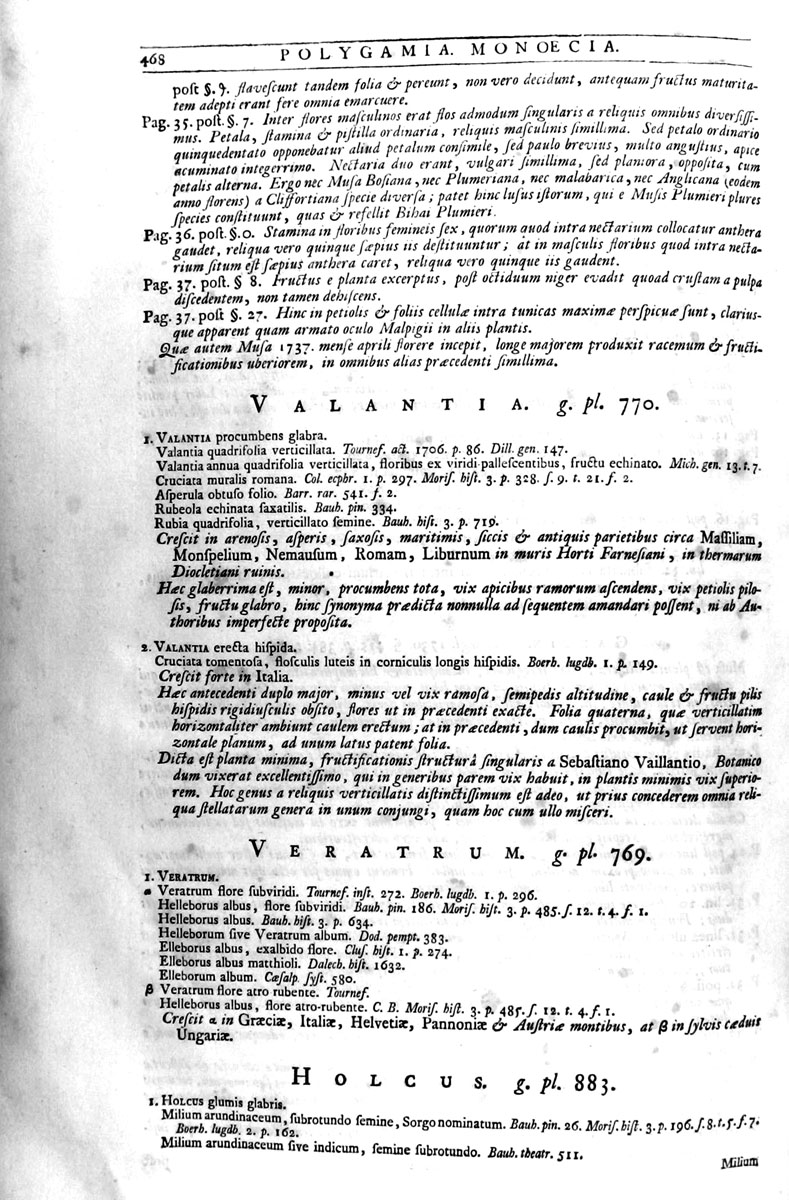 468
POLYGAMIA. MONOECIA.
poſt §. 7. flaveſcunt tandem folia & pereunt, non vero decidunt, antequam fructus maturita-
tem adepti erant fere omnia emarcuere.
Pag. 35. poſt. §. 7. Inter flores maſculinos erat flos admodum ſingularis a reliquis omnibus diverſiſſi-
mus. Petala, ſtamina & piſtilla ordinaria, reliquis maſculinis ſimillima. Sed petalo ordinario
quinquedentato opponebatur aliud petalum conſimile, ſed paulo brevius, multo anguſtius, apice
acuminato integerrimo. Nectaria duo erant, vulgari ſimillima, ſed planiora, oppoſita, cum
petalis alterna. Ergo nec Muſa Boſiana, nec Plumeriana, nec malabarica, nec Anglicana (eodem
anno florens) a Cliffortiana ſpecie diverſa; patet hinc luſus iſtorum, qui e Muſis Plumieri plures
ſpecies conſtituunt, quas & refellit Bihai Plumieri.
Pag. 36. poſt. §. 0. Stamina in floribus femineis ſex, quorum quod intra nectarium collocatur anthera
gaudet, reliqua vero quinque ſæpius iis deſtituuntur; at in maſculis floribus quod intra necta-
rium ſitum eſt ſæpius anthera caret, reliqua vero quinque iis gaudent.
Pag. 37. poſt. § 8. Fructus e planta excerptus, poſt octiduum niger evadit quoad cruſtam a pulpa
diſcedentem, non tamen dehiſcens.
Pag. 37. poſt §. 27. Hinc in petiolis & foliis cellulæ intra tunicas maximæ perſpicuæ ſunt, clarius-
que apparent quam armato oculo Malpigii in aliis plantis.
Quæ autem Muſa 1737. menſe aprili florere incepit, longe majorem produxit racemum & fructi-
ficationibus uberiorem, in omnibus alias præcedenti ſimillima.
VALANTIA. g. pl. 770.
1. VALANTIA procumbens glabra.
Valantia quadrifolia verticillata. Tournef. act. 1706. p. 86. Dill. gen. 147.
Valantia annua quadrifolia verticillata, floribus ex viridi palleſcentibus, fructu echinato. Mich. gen. 13. t. 7.
Cruciata muralis romana. Col. ecphr. 1. p. 297. Moriſ. hiſt. 3. p. 328. ſ. 9. t. 21. f. 2.
Aſperula obtuſo folio. Barr. rar. 541. f. 2.
Rubeola echinata ſaxatilis. Bauh. pin. 334.
Rubia quadrifolia, verticillato ſemine. Bauh. hiſt. 3. p. 719.
Creſcit in arenoſis, aſperis, ſaxoſis, maritimis, ſiccis & antiquis parietibus circa Maſſiliam,
Monſpelium, Nemauſum, Romam, Liburnum in muris Horti Farneſiani, in thermarum
Diocletiani ruinis.
Hæc glaberrima eſt, minor, procumbens tota, vix apicibus ramorum aſcendens, vix petiolis pilo-
ſis, fructu glabro, hinc ſynonyma prædicta nonnulla ad ſequentem amandari poſſent, ni ab Au-
thoribus imperfecte propoſita.
2. VALANTIA erecta hiſpida.
Cruciata tomentoſa, floſculis luteis in corniculis longis hiſpidis. Boerh. lugdb. 1. p. 149.
Creſcit forte in Italia.
Hæc antecedenti duplo major, minus vel vix ramoſa, ſemipedis altitudine, caule & fructu pilis
hiſpidis rigidiuſculis obſito, flores ut in præcedenti exacte. Folia quaterna, quæ verticillatim
horizontaliter ambiunt caulem erectum; at in præcedenti, dum caulis procumbit, ut ſervent hori-
zontale planum, ad unum latus patent folia.
Dicta eſt planta minima, fructificationis ſtructurâ ſingularis a Sebaſtiano Vaillantio, Botanico
dum vixerat excellentiſſimo, qui in generibus parem vix habuit, in plantis minimis vix ſuperio-
rem. Hoc genus a reliquis verticillatis diſtinctiſſimum eſt adeo, ut prius concederem omnia reli-
qua ſtellatarum genera in unum conjungi, quam hoc cum ullo miſceri.
VERATRUM. g. pl. 769.
1. VERATRUM.
α Veratrum flore ſubviridi. Tournef. inſt. 272. Boerh. lugdb. 1. p. 296.
Helleborus albus, flore ſubviridi. Bauh. pin. 186. Moriſ. hiſt. 3. p. 485. ſ. 12. t. 4. f. 1.
Helleborus albus. Bauh. hiſt. 3. p. 634.
Helleborum ſive Veratrum album. Dod. pempt. 383.
Elleborus albus, exalbido flore. Cluſ. hiſt. 1. p. 274.
Elleborus albus matthioli. Dalech. hiſt. 1632.
Elleborum album. Cæſalp. ſyſt. 580.
β Veratrum flore atro rubente. Tournef.
Helleborus albus, flore atro-rubente. C. B. Moriſ. hiſt. 3. p. 485. ſ. 12. t. 4. f. 1.
Creſcit α in Græciæ, Italiæ, Helvetiæ, Pannoniæ & Auſtriæ montibus, at β in ſylvis cæduis
Ungariæ.
HOLCUS. g. pl. 883.
1. HOLCUS glumis glabris.
Milium arundinaceum, ſubrotundo ſemine, Sorgo nominatum. Bauh. pin. 26. Moriſ. hiſt. 3. p. 196. ſ. 8. t. 5. f. 7.
Boerh. lugdb. 2. p. 162.
Milium arundinaceum ſive indicum, ſemine ſubrotundo. Bauh. theatr. 511.
Milium